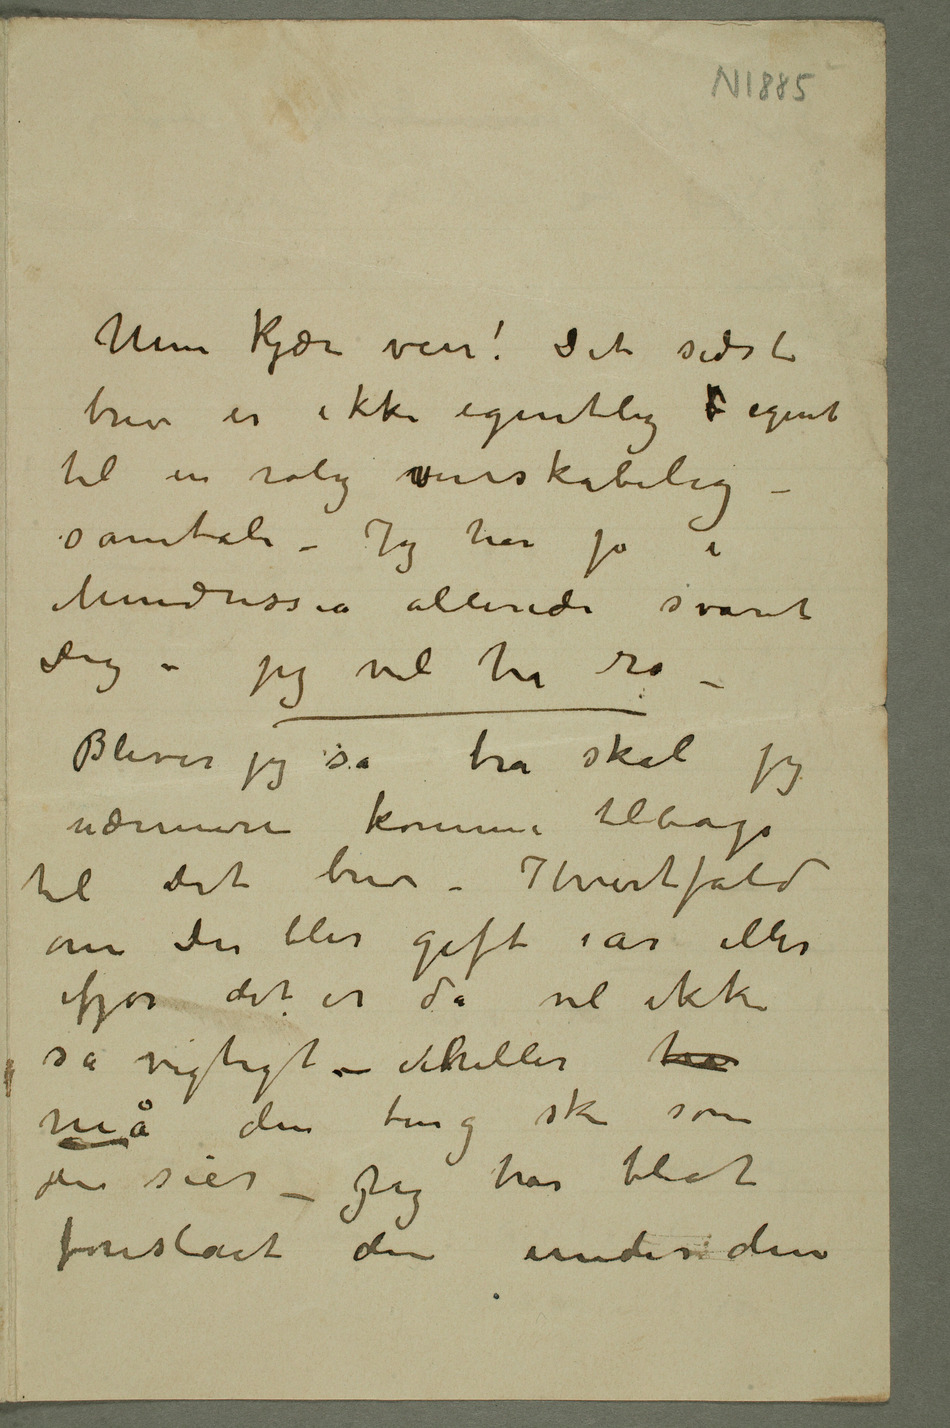 N1885
Min kjære ven! Det sidste
brev er ikke egentlig egent
til en rolig venskabelig –
samtale – Jeg har jo i
allerede svaret
Dig – jeg vil ha ro –
Bliver jeg så bra skal jeg
nærmere komme tilbage
til det brev – Ihvertfald
om Du blir gift iår eller
ifjor det er da vel ikke
så vigtigt – heller ha
må den ting ske som
du sier – Jeg har blot
foreslået den under den